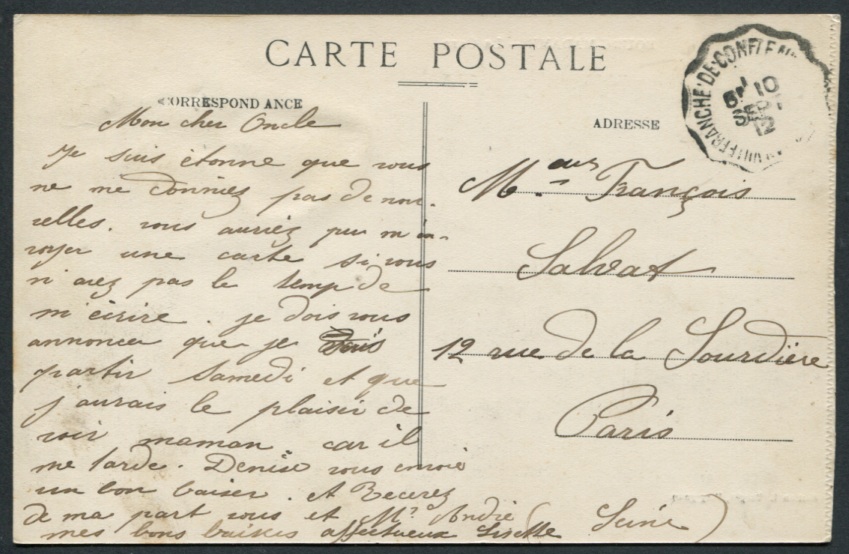 CARTE POSTALE
CORRESPONDANCE
Mon cher Oncle
Je suis étonne que vous
ne me donniez pas de nou-
velles. vous auriez pu m'en-
voyer une carte si vous
n'avez pas le temp de
m'écrire. je dois vous
annoncer que je dois
partir Samedi et que
j'aurais le plaisir de
voir maman car il
me tarde. Denise vous envoie
un bon baiser. et Recevez
de ma part vous et Mr André
mes bons baisers affectueux Lisette
ADRESSE
Mr François
Salvat
12 rue de la Sourdière
Paris
(Seine)
VILLEFRANCHE-DE-CONFLENT
10
SEPT
12